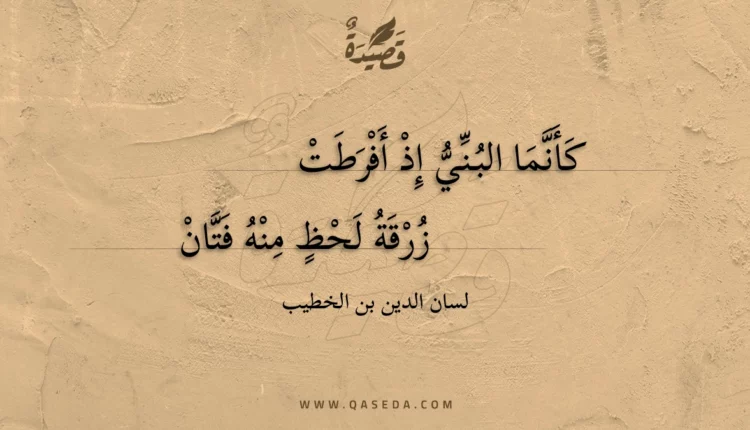 قَصِيدَةٌ
كَأَنَّمَا البُنِّيُّ إِذْ أَفْرَطَتْ
زُرْقَةُ لَحْظٍ مِنْهُ فَتَّانْ
لسان الدين بن الخطيب
WWW.QASEDA.COM